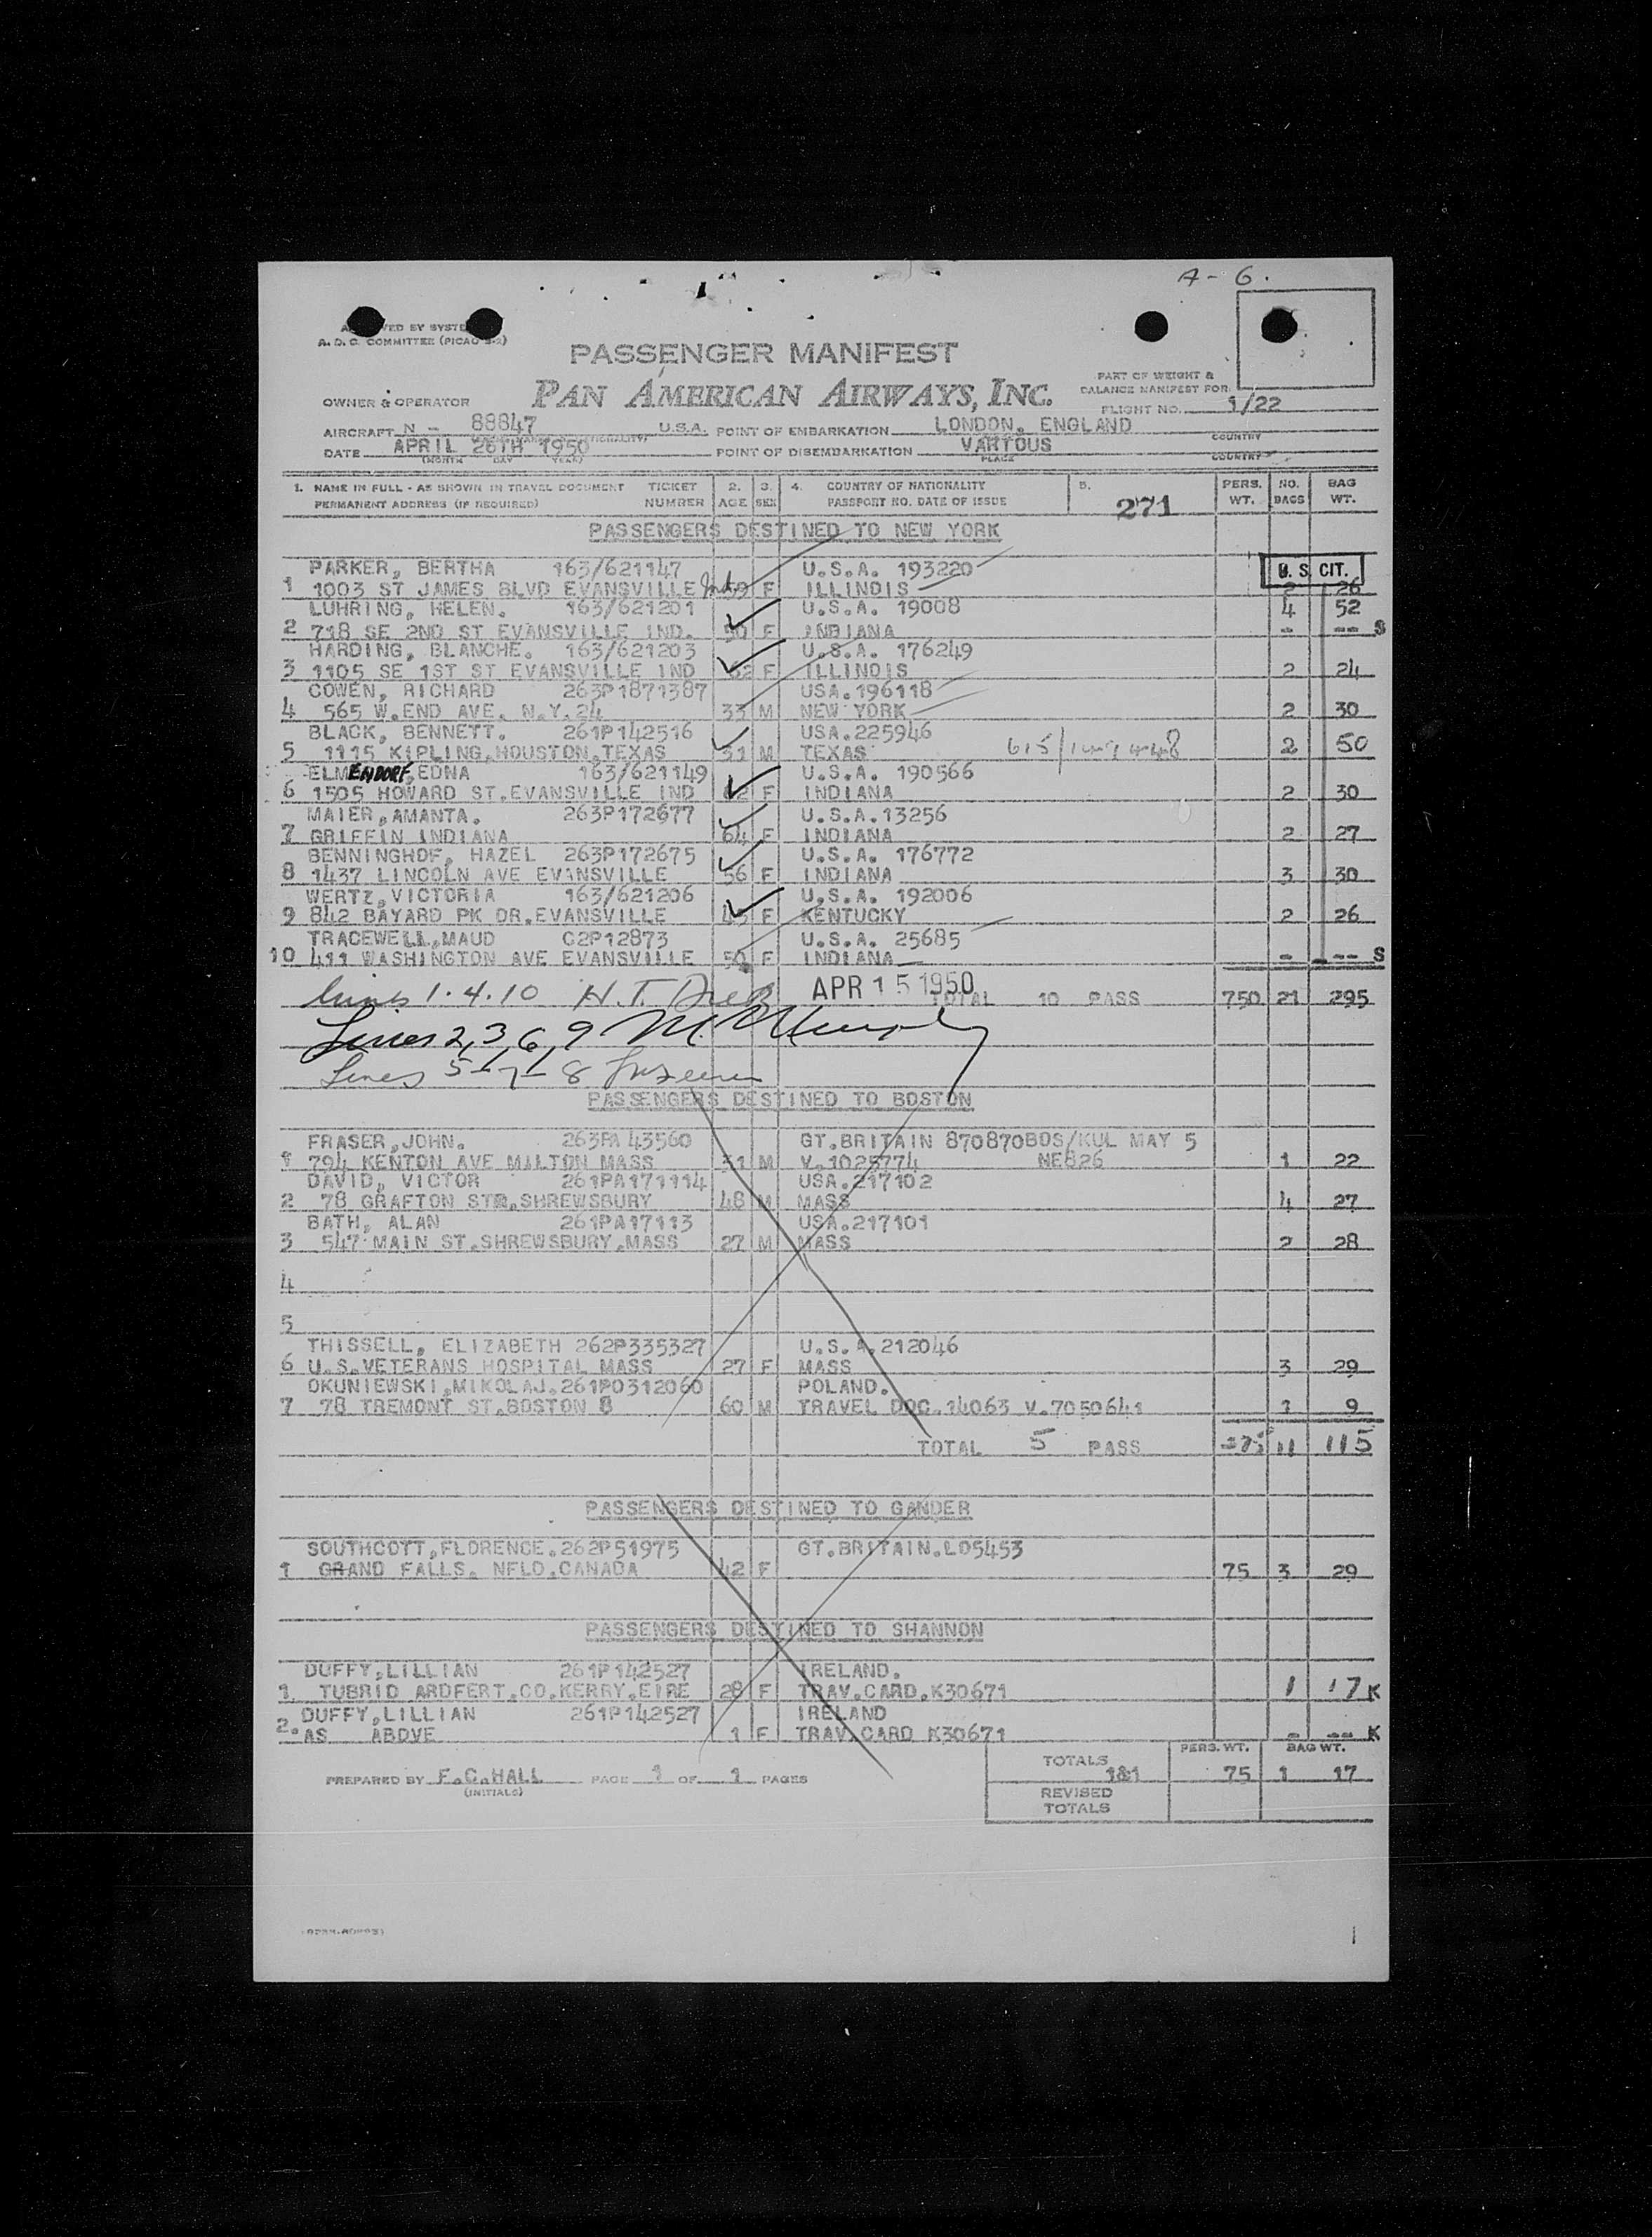 A - 6.
A. D. C. COMMITTEE (PICAO
PASSENGER MANIFEST
PAN AMERICAN AIRWAYS, INC.
PART OF WEIGHT &
BALANCE MANIFEST FOR
OWNER & OPERATOR
FLIGHT NO. 1/22
AIRCRAFT N - 88847 U.S.A. POINT OF EMBARKATION LONDON, ENGLAND
COUNTRY
DATE APRIL 26TH 1950 POINT OF DISEMBARKATION VARIOUS
(MONTH DAY YEAR) PLACE COUNTRY
1. NAME IN FULL - AS SHOWN IN TRAVEL DOCUMENT TICKET 2. 3. 4. COUNTRY OF NATIONALITY 5. PERS. NO. BAG
PERMANENT ADDRESS (IF REQUIRED) NUMBER AGE SEX PASSPORT NO. DATE OF ISSUE 271 WT. BAGS WT.
PASSENGERS DESTINED TO NEW YORK
U. S. CIT.
PARKER, BERTHA 163/621147 U.S.A. 193220
1 1003 ST JAMES BLVD EVANSVILLE Ind 59 F ILLINOIS 2 26
LUHRING, HELEN. 163/621201 U.S.A. 19008 4 52
2 718 SE 2ND ST EVANSVILLE IND. 50 F INDIANA - -- S
HARDING, BLANCHE. 163/621203 U.S.A. 176249
3 1105 SE 1ST ST EVANSVILLE IND 62 F ILLINOIS 2 24
COWEN, RICHARD 263P1871387 USA.196118
4 565 W.END AVE. N.Y.24 33 M NEW YORK 2 30
BLACK, BENNETT. 261P142516 USA.225946
5 1115 KIPLING,HOUSTON,TEXAS 51 M TEXAS 2 50
ELMENDORF,EDNA 163/621149 U.S.A. 190566
6 1505 HOWARD ST.EVANSVILLE IND 62 F INDIANA 2 30
MAIER,AMANTA. 263P172677 U.S.A.13256
7 GRIFFIN INDIANA 64 F INDIANA 2 27
BENNINGHOF, HAZEL 263P172675 U.S.A. 176772
8 1437 LINCOLN AVE EVANSVILLE 56 F INDIANA 3 30
WERTZ,VICTORIA 163/621206 U.S.A. 192006
9 842 BAYARD PK DR.EVANSVILLE 45 F KENTUCKY 2 26
TRACEWELL,MAUD C2P12873 U.S.A. 25685
10 411 WASHINGTON AVE EVANSVILLE 50 F INDIANA - --- S
Lines 1.4.10 H.T. APR 15 1950 TOTAL 10 PASS 750 21 295
Lines 2,3,6,9 M. Murphy
Lines 5-7-8
PASSENGERS DESTINED TO BOSTON
FRASER,JOHN. 263PA43560 GT.BRITAIN 870870BOS/KUL MAY 5
1 794 KENTON AVE MILTON MASS 51 M V.1025774 NE826 1 22
DAVID, VICTOR 261PA171114 USA.217102
2 78 GRAFTON STR.SHREWSBURY 48 M MASS 4 27
BATH, ALAN 261PA17113 USA.217101
3 547 MAIN ST.SHREWSBURY.MASS 27 M MASS 2 28
4
5
THISSELL, ELIZABETH 262P335327 U.S.A.212046
6 U.S.VETERANS HOSPITAL MASS 27 F MASS 3 29
OKUNIEWSKI,MIKOLAJ.261P0312060 POLAND.
7 78 TREMONT ST.BOSTON 8 60 M TRAVEL DOC.14063 V.7050641 1 9
TOTAL 5 PASS 375 11 115
PASSENGERS DESTINED TO GANDER
SOUTHCOTT,FLORENCE.262P51975 GT.BRITAIN.LO5453
1 GRAND FALLS. NFLD.CANADA 42 F 75 3 29
PASSENGERS DESTINED TO SHANNON
DUFFY,LILLIAN 261P142527 IRELAND.
1. TUBRID ARDFERT.CO.KERRY.EIRE 28 F TRAV.CARD.K30671 1 17 K
DUFFY,LILLIAN 261P142527 IRELAND
2. AS ABOVE 1 F TRAV.CARD K30671 - -- K
PERS. WT. BAG WT.
TOTALS 1&1 75 1 17
PREPARED BY F.C.HALL PAGE 1 OF 1 PAGES
(INITIALS)
REVISED
TOTALS